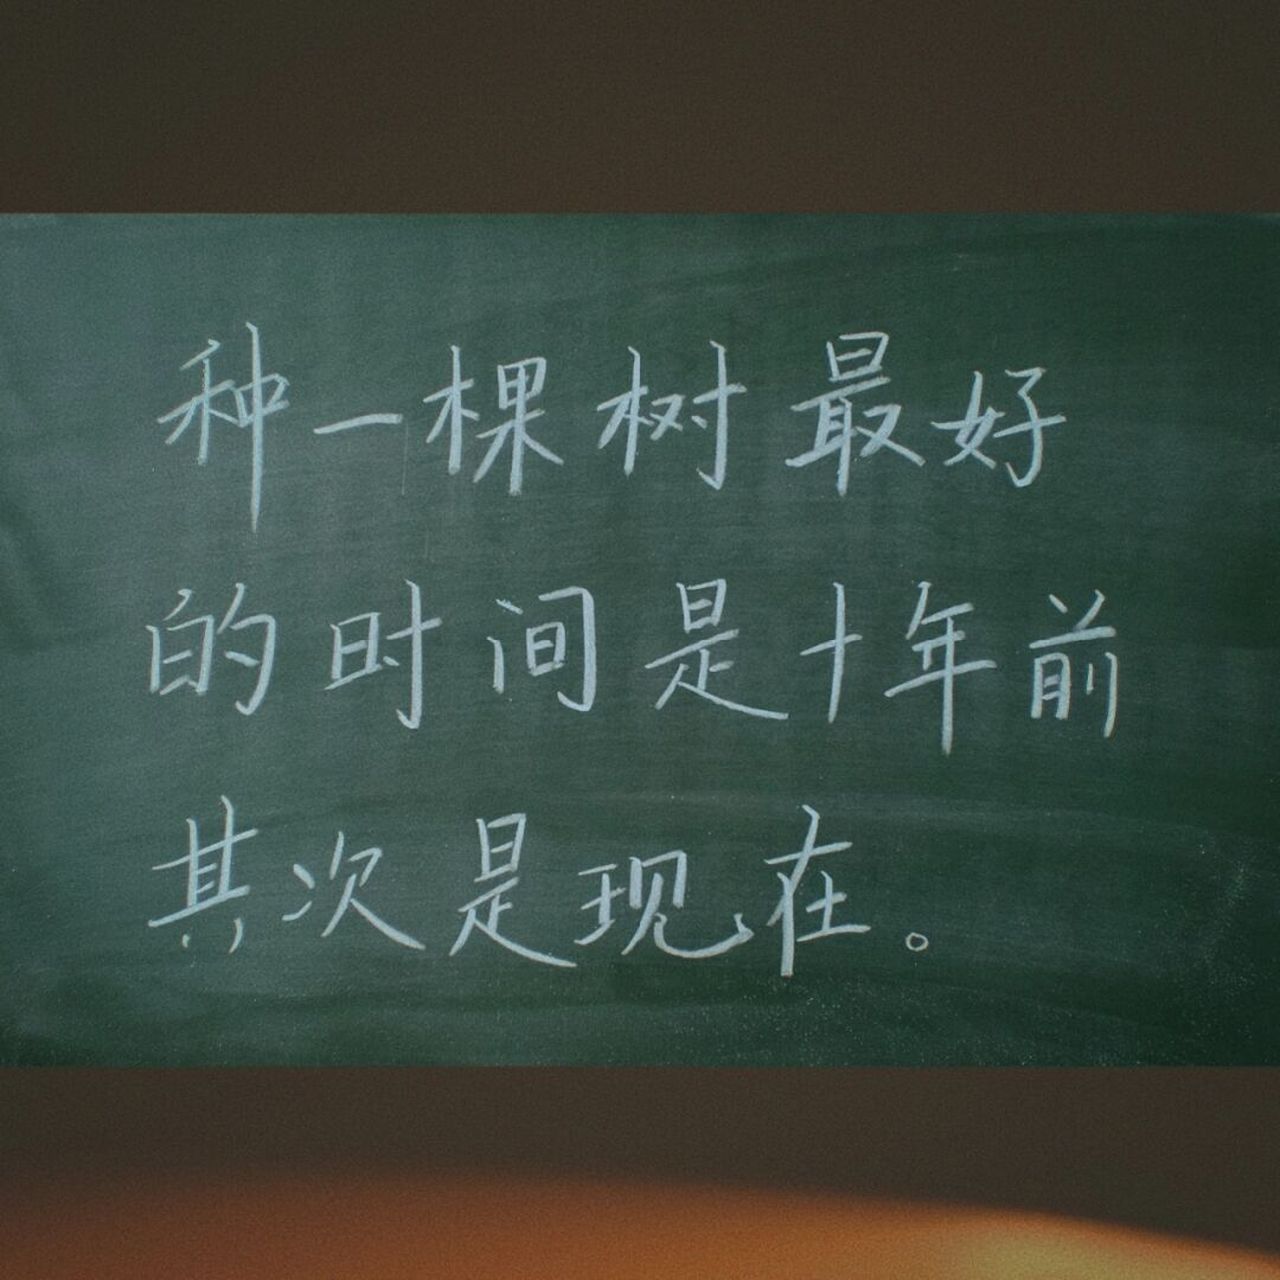 种一棵树最好
的时间是十年前
其次是现在。